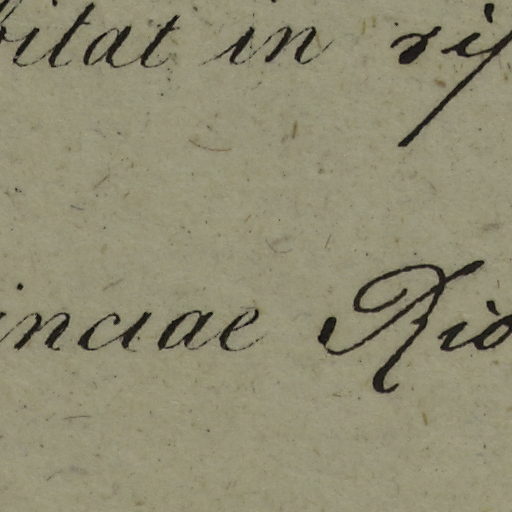 bitat in rip
inciae Rio